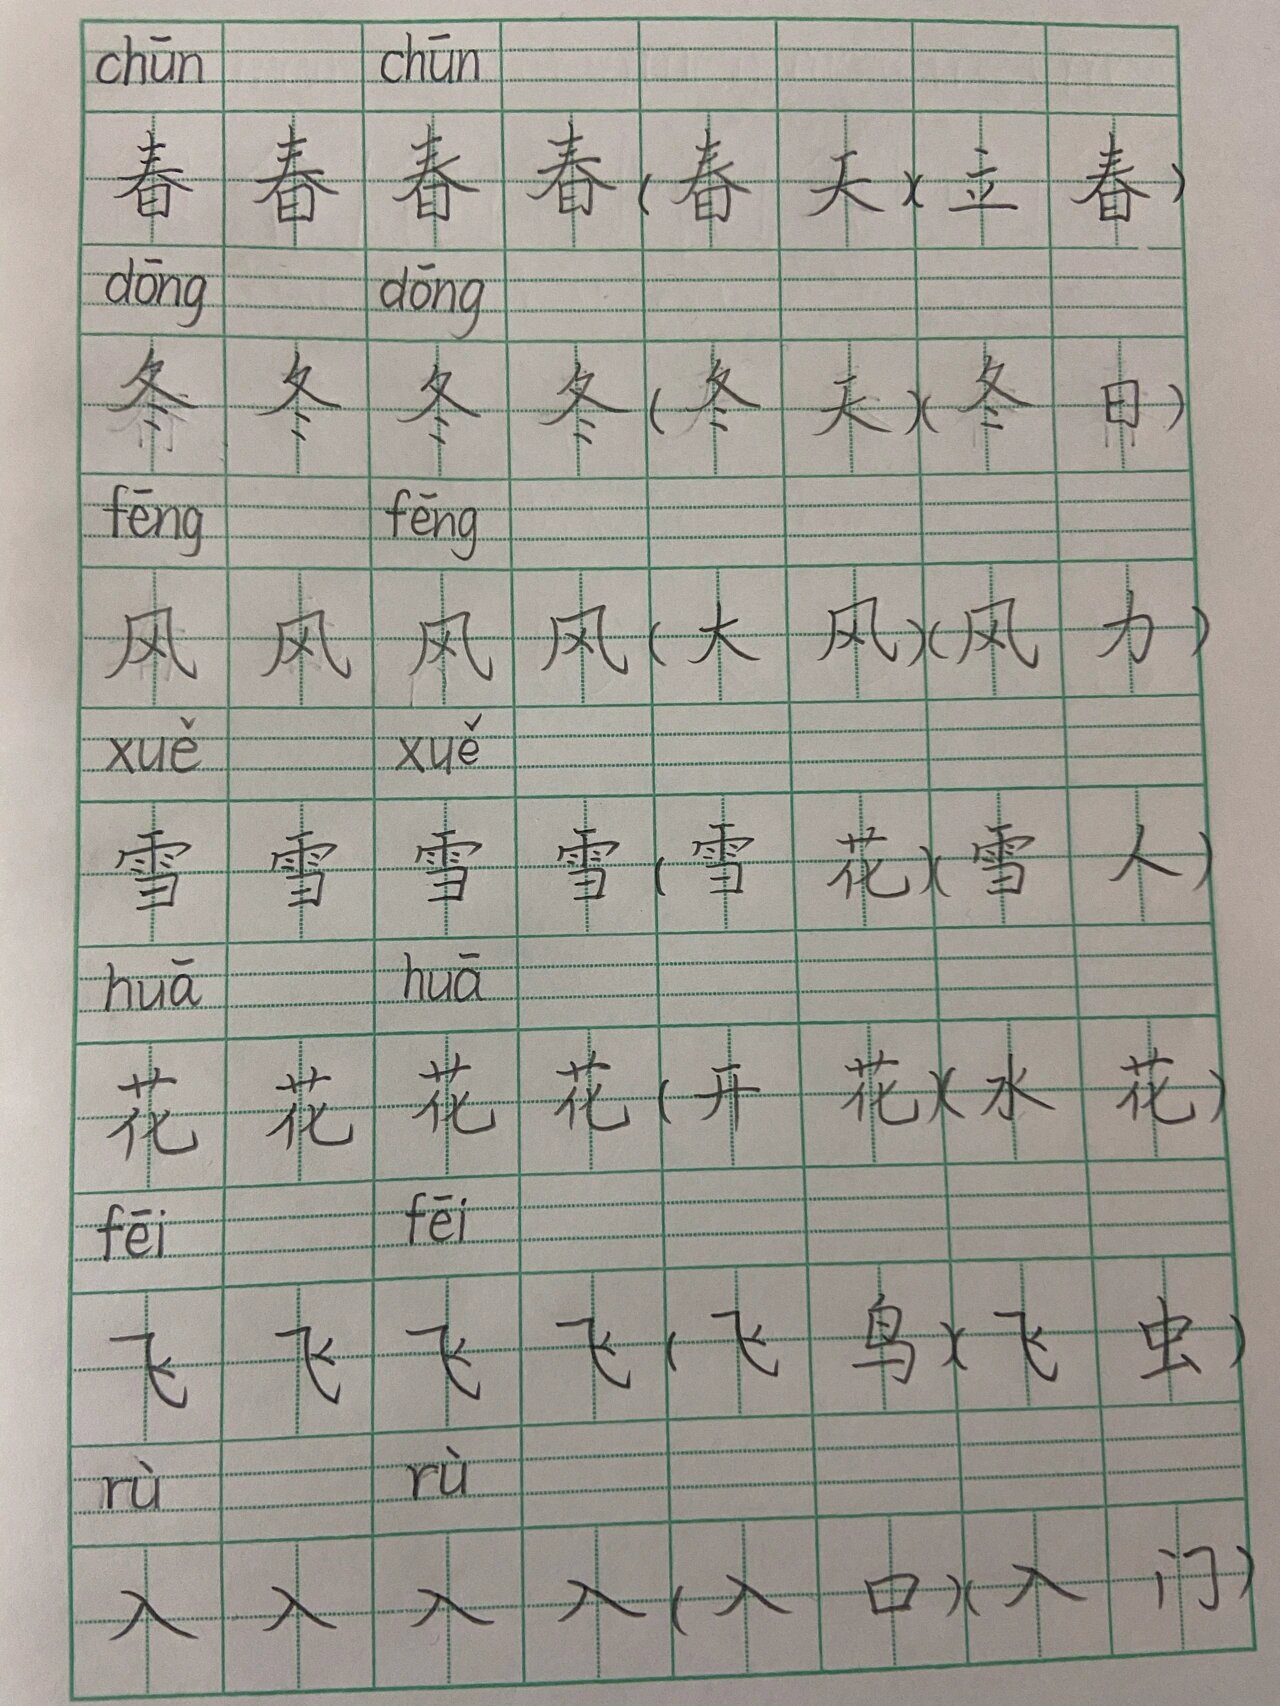 chūn chūn
春 春 春 春 (春 天)(立 春)
dōng dōng
冬 冬 冬 冬 (冬 天)(冬 日)
fēng fēng
风 风 风 风 (大 风)(风 力)
xuě xuě
雪 雪 雪 雪 (雪 花)(雪 人)
huā huā
花 花 花 花 (开 花)(水 花)
fēi fēi
飞 飞 飞 飞 (飞 鸟)(飞 虫)
rù rù
入 入 入 入 (入 口)(入 门)